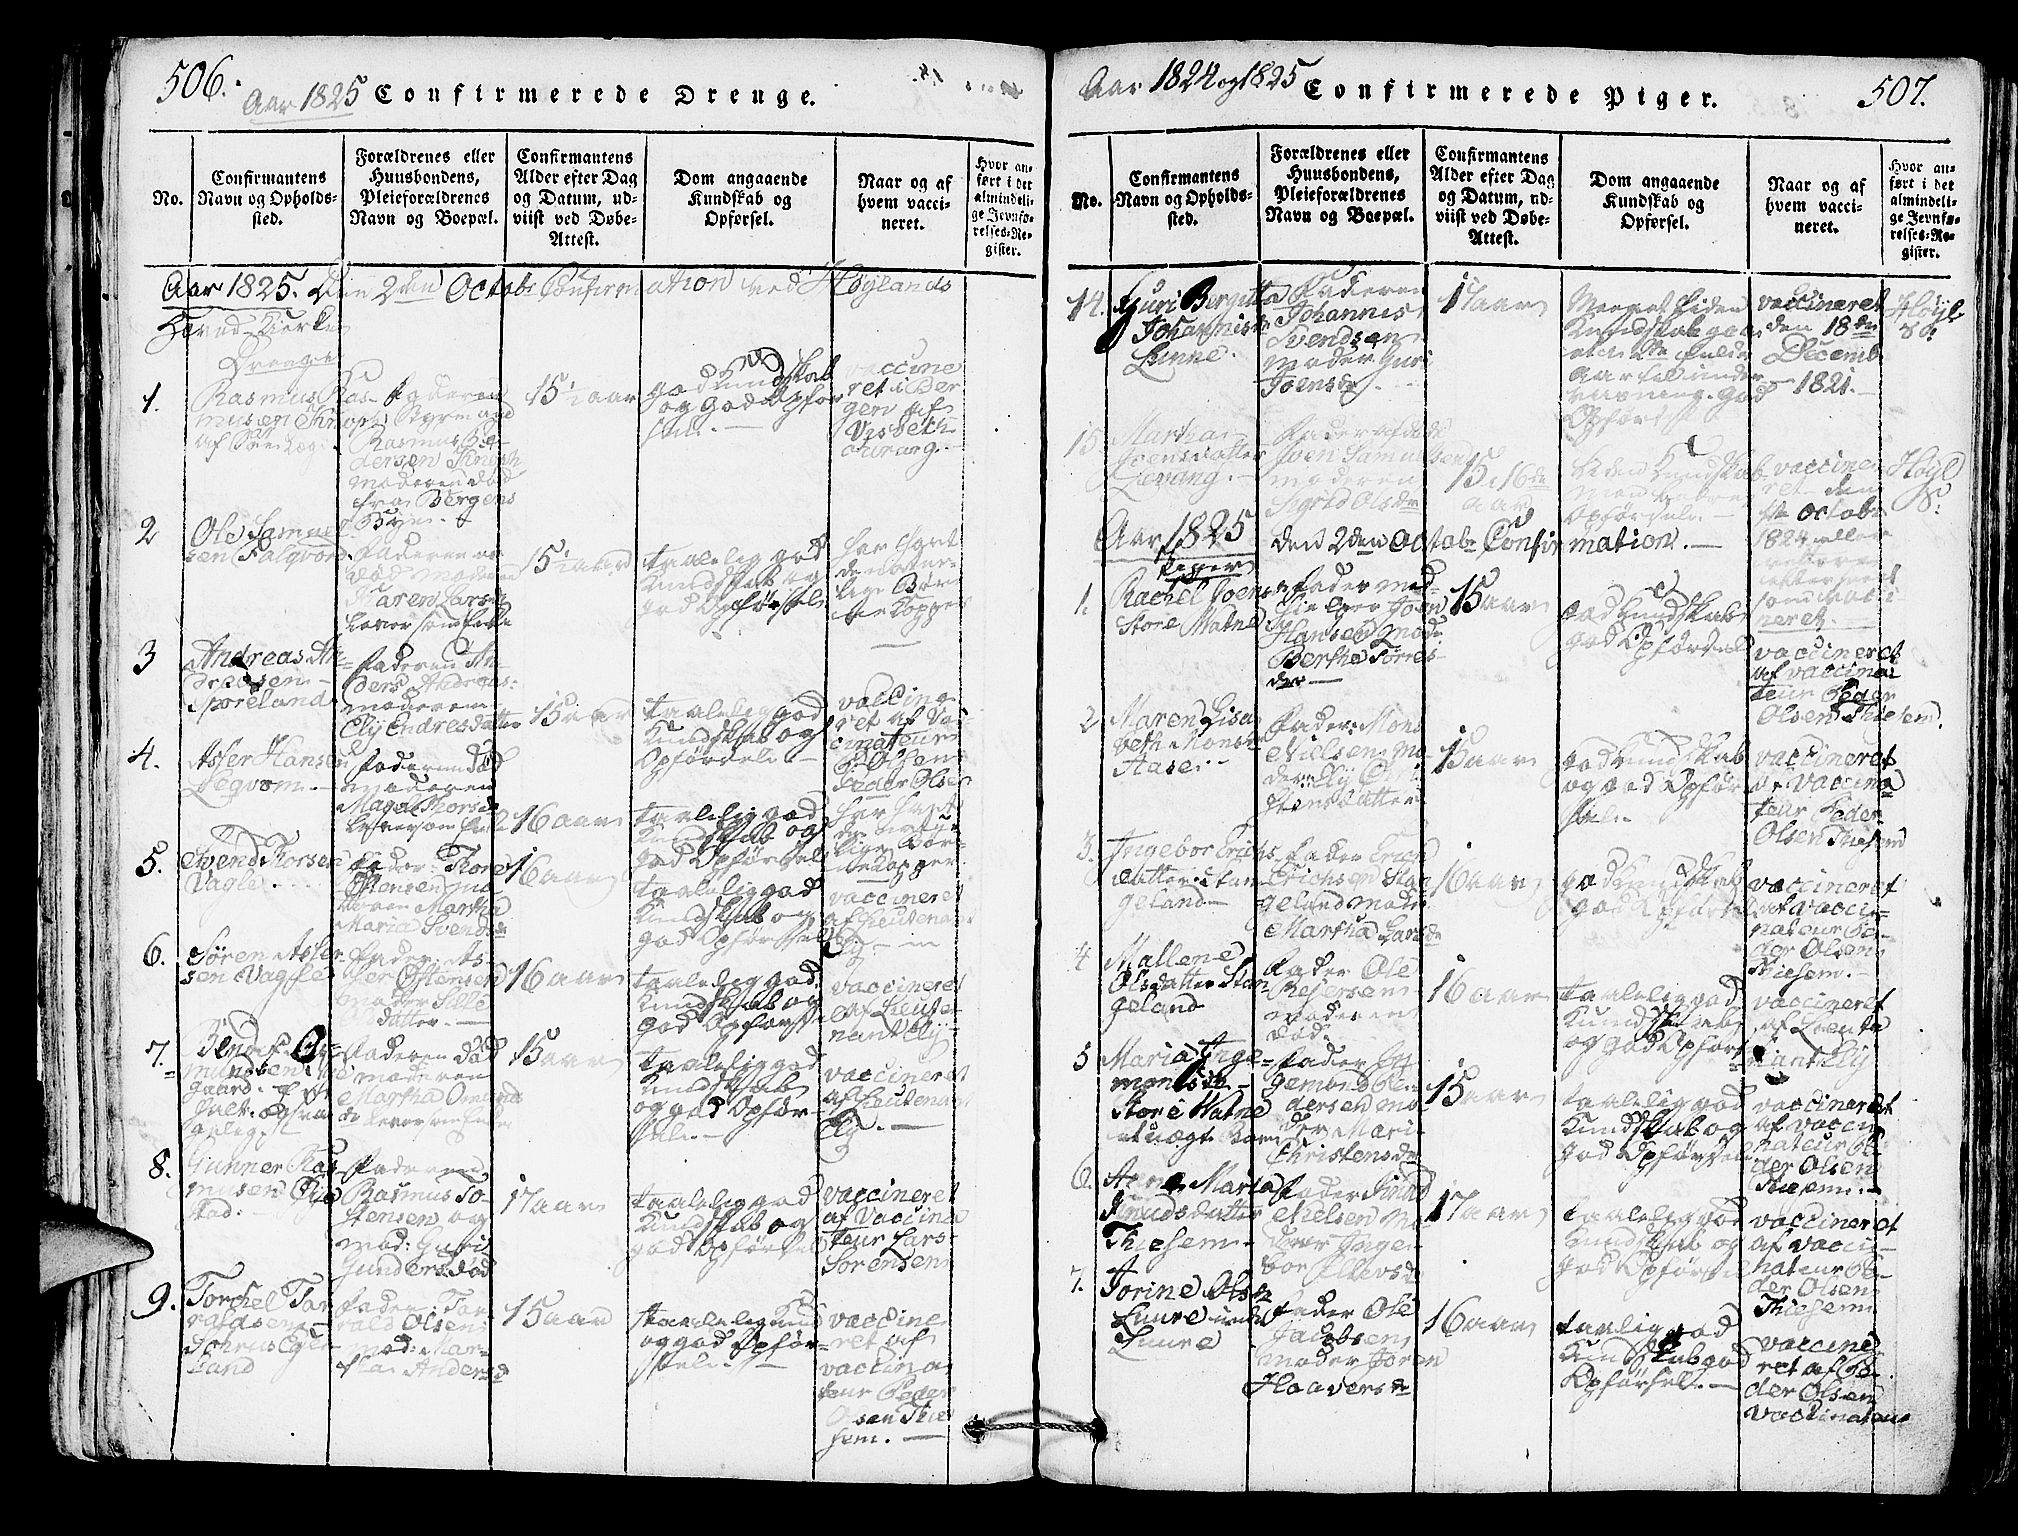 506.
Aar 1825 Confirmerede Drenge.
No.
Confirmantens
Navn og Opholds-
sted.
Forældrenes eller
Huusbondens,
Pleieforældrenes
Navn og Boepæl.
Confirmantens
Alder efter Dag
og Datum, ud-
viist ved Døbe-
Attest.
Dom angaaende
Kundskab og
Opførsel.
Naar og af
hvem vacci-
neret.
Hvor an-
ført i det
almindeli-
ge Jevnfø-
relses-Re-
gister.
Aar 1825. Den 2den Octobr Confirmation ved Høylands
Hoved-Kierke
Drenge
1.
Rasmus Ras-
musen
Faderen
Rasmus Pe-
dersen
moderen død
fra Bergens
Byen.
15 1/2 aar
god Kundskab
og god Opfør
sel.
vaccine
ret i Ber
gen af
2
Ole Samuel-
sen
Faderen er
død moderen
Karen Lars
15 1/2 aar
taalelig god
Kundskab og
god Opførsel
har havt
de natur-
lige Børne
Kopper
3
Andreas An-
dreasen
Sporeland
Faderen An-
ders Andreas:
moderen
Elj Endresdatter
15 aar
taalelig god
Kundskab og
Opførsel.
vaccine
ret af Vac-
cinateur
P. Olsen
4.
Asser Hansen
Faderen død
moderen
16 aar
taalelig god
Kundskab og
god Opførsel
har havt
de natur-
lige Bør-
nekopper
5.
Svend Thorsen
Vagle.
Fader: Thore
Østensen mo
deren Martha
Maria Svends
16 aar
taalelig god
Kundskab og
god Opførsel
vaccineret
af Lieutenan
6.
Søren Asser
sen Vagle
Fader As-
ser Østensen
moder Sille
datter.
16 aar
taalelig god
Kundskab og
god Opførsel
vaccineret
af Lieute-
nant Elj
7.
Faderen død
moderen
Martha
15 aar
taalelig god
Kundskab
og god Opfør-
sel.
vaccineret
af Lieutenan
Elj.
8.
Gunner Ras
musen
stad.
Faderen
Rasmus To-
stensen og
mod: Guri
Gundersdød
17 aar
taalelig god
Kundskab og
god Opførsel
vaccineret
af Vaccina
teur Lars
Sørensen
9.
Torchel Tar
raldsen
land
Fader Tar
rald Olsen
mod: Mar-
tha Andersd
15 aar
taalelig Kund
og god Opfør-
sel.
vaccine
ret af
vaccina
teur Peder
Olsen Thie
sem.
Aar 1824 og 1825 Confirmerede Piger.
507.
No.
Confirmantens
Navn og Opholds-
sted.
Forældrenes eller
Huusbondens,
Pleieforældrenes
Navn og Boepæl.
Confirmantens
Alder efter Dag
og Datum, ud-
viist ved Døbe-
Attest.
Dom angaaende
Kundskab og
Opførsel.
Naar og af
hvem vacci-
neret.
Hvor an-
ført i det
almindeli-
ge Jevnfø-
relses-Re-
gister.
14.
Guri Bergitta
Johannisdr
Lunne.
Faderen
Johannis
Svendsen
moder Guri
Joensdr.
17 aar
Meget liden
Kundskab
Opførsel
vaccineret
den 18de
Decemb.
1821.
Høyl
S.
15.
Martha
Joensdatter
Fader afdøde
Joen Samuelsen
moderen
Sigrid Olsdr
15 i 16de
aar
liden Kundskab
men
Opførsel.
vaccine
ret den
7de October
1824
Høyl
S.
Aar 1825 den 2den Octobr Confirmation.
Piger
1.
Rachel Joens
Store Watne
Fader
Joen
Hansen mode
Bertha Torres-
dr
15 aar
god Kundskab
god Opførsel
vaccineret
af vaccina
teur Peder
Olsen Thiesem.
2
Maren Lisa
beth Monsdr
Aase.
Fader: Mons
Nielsen mo
der: Elj
stensdatter
15 aar
god Kundskab
og god Opfør
sel.
vaccineret
af Vaccina
teur Peder
Olsen Thiesem
3.
Ingebor Erichs
datter Stan
geland
Fader Erich
Erichsen Stan
geland mode
Martha Larsdr
16 aar
god Kundskab
god Opførsel
vaccineret
af Vacci-
nateur Pe-
der Olsen
Thiesem.
4
Mallene
Olsdatter Stan
geland
Fader Ole
moderen
død.
16 aar
taalelig god
Kundskab
og god Opførs
vaccineret
af Lieute
nant Elj
5
Maria Inge-
mondsdr
Store Watne
et uægte Barn
Fader In
gemond Pe-
dersen mo
der Mari
Christensdr
15 aar
taalelig god
Kundskab og
god Opførsel
vaccineret
af vacci
nateur Pe-
der Olsen
Thiesem.
6.
Anne Maria
Knudsdatter
Thiesem
Fader Knud
Nielsen mo
der Inge-
bor Ellevsdr
17 aar
taalelig god
Kundskab og
god Opførsel
vaccineret
af vacci-
nateur Pe-
der Olsen
Thiesem
7.
Jorine Olsdr
Luure
Luure
Fader Ole
Jacobsen
moder Joren
Haaversdr
16 aar
taalig god
Kundskab god
Opførsel.
vaccine
ret af Pe-
der Olsen
vaccinateur